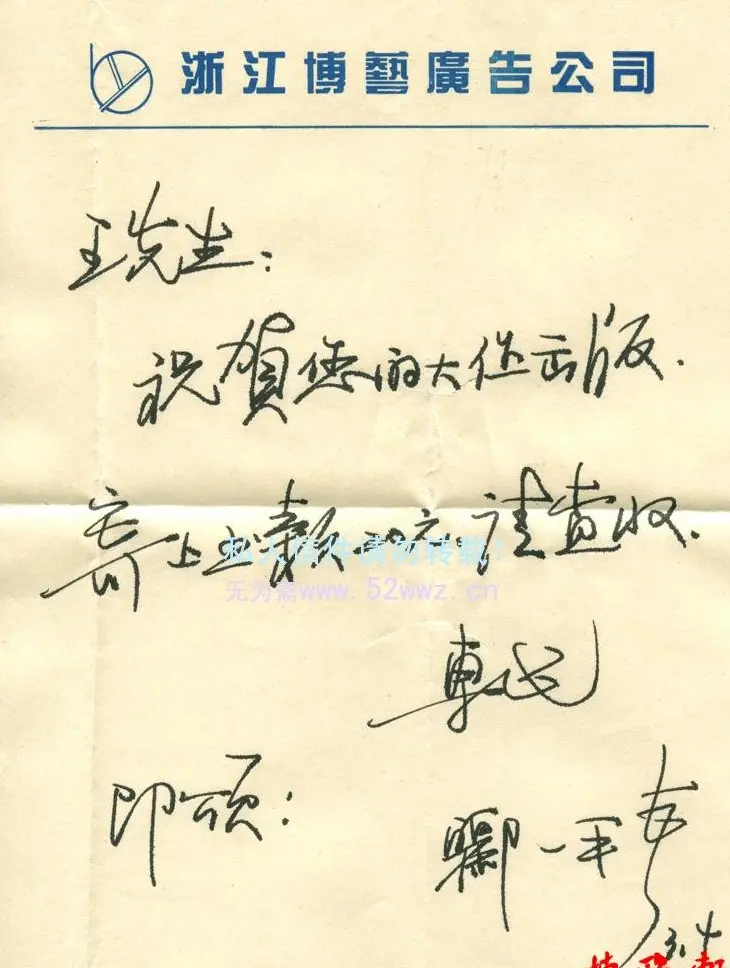 浙江博藝廣告公司
王先生：
祝賀您的大作出版.
寄上 款 請查收.
私人信件请勿转载!
无为斋www.52wwz.cn
專
即頌：
一 平
3.4